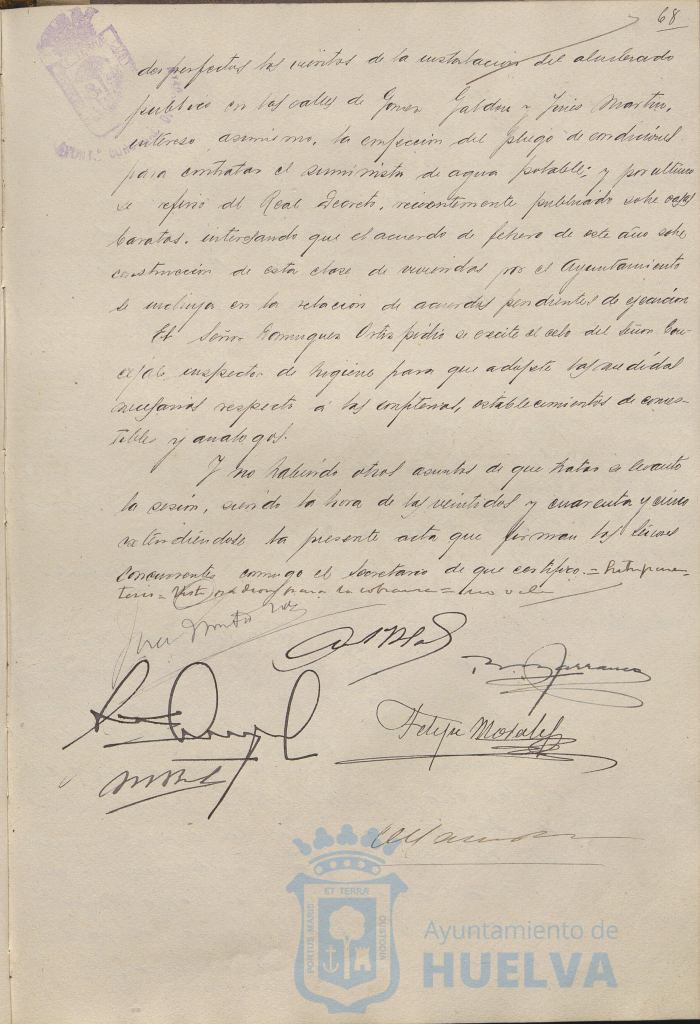 68
des perfectas las cuentas de la instalación del alumbrado
público en las calles de Gomez Galdon y Ginés Martin,
intereso asimismo, la confección del pliego de condiciones
para contratar el suministro de agua potable; y por ultimo
se refirió al Real Decreto, recientemente publicado sobre casas
baratas, interesando que el acuerdo de febrero de este año sobre
construcción de esta clase de viviendas por el Ayuntamiento
se incluya en la relación de acuerdos pendientes de ejecución
El Señor Dominguez Ortiz pidió se excite el celo del Señor Con-
cejal inspector de higiene para que adopte las medidas
necesarias respecto á las confiterias, establecimientos de comes-
tibles y analogos.
Y no habiendo otros asuntos de que tratar se levantó
la sesión, siendo la hora de las veintidos y cuarenta y cinco
extendiéndose la presente acta que firman los Señores
concurrentes conmigo el Secretario de que certifico. = Entreparen-
tesis = para la cobranza = no vale
Felipe Morales
ET TERRÆ
PORTUS MARIS
CUSTODIA
Ayuntamiento de
HUELVA